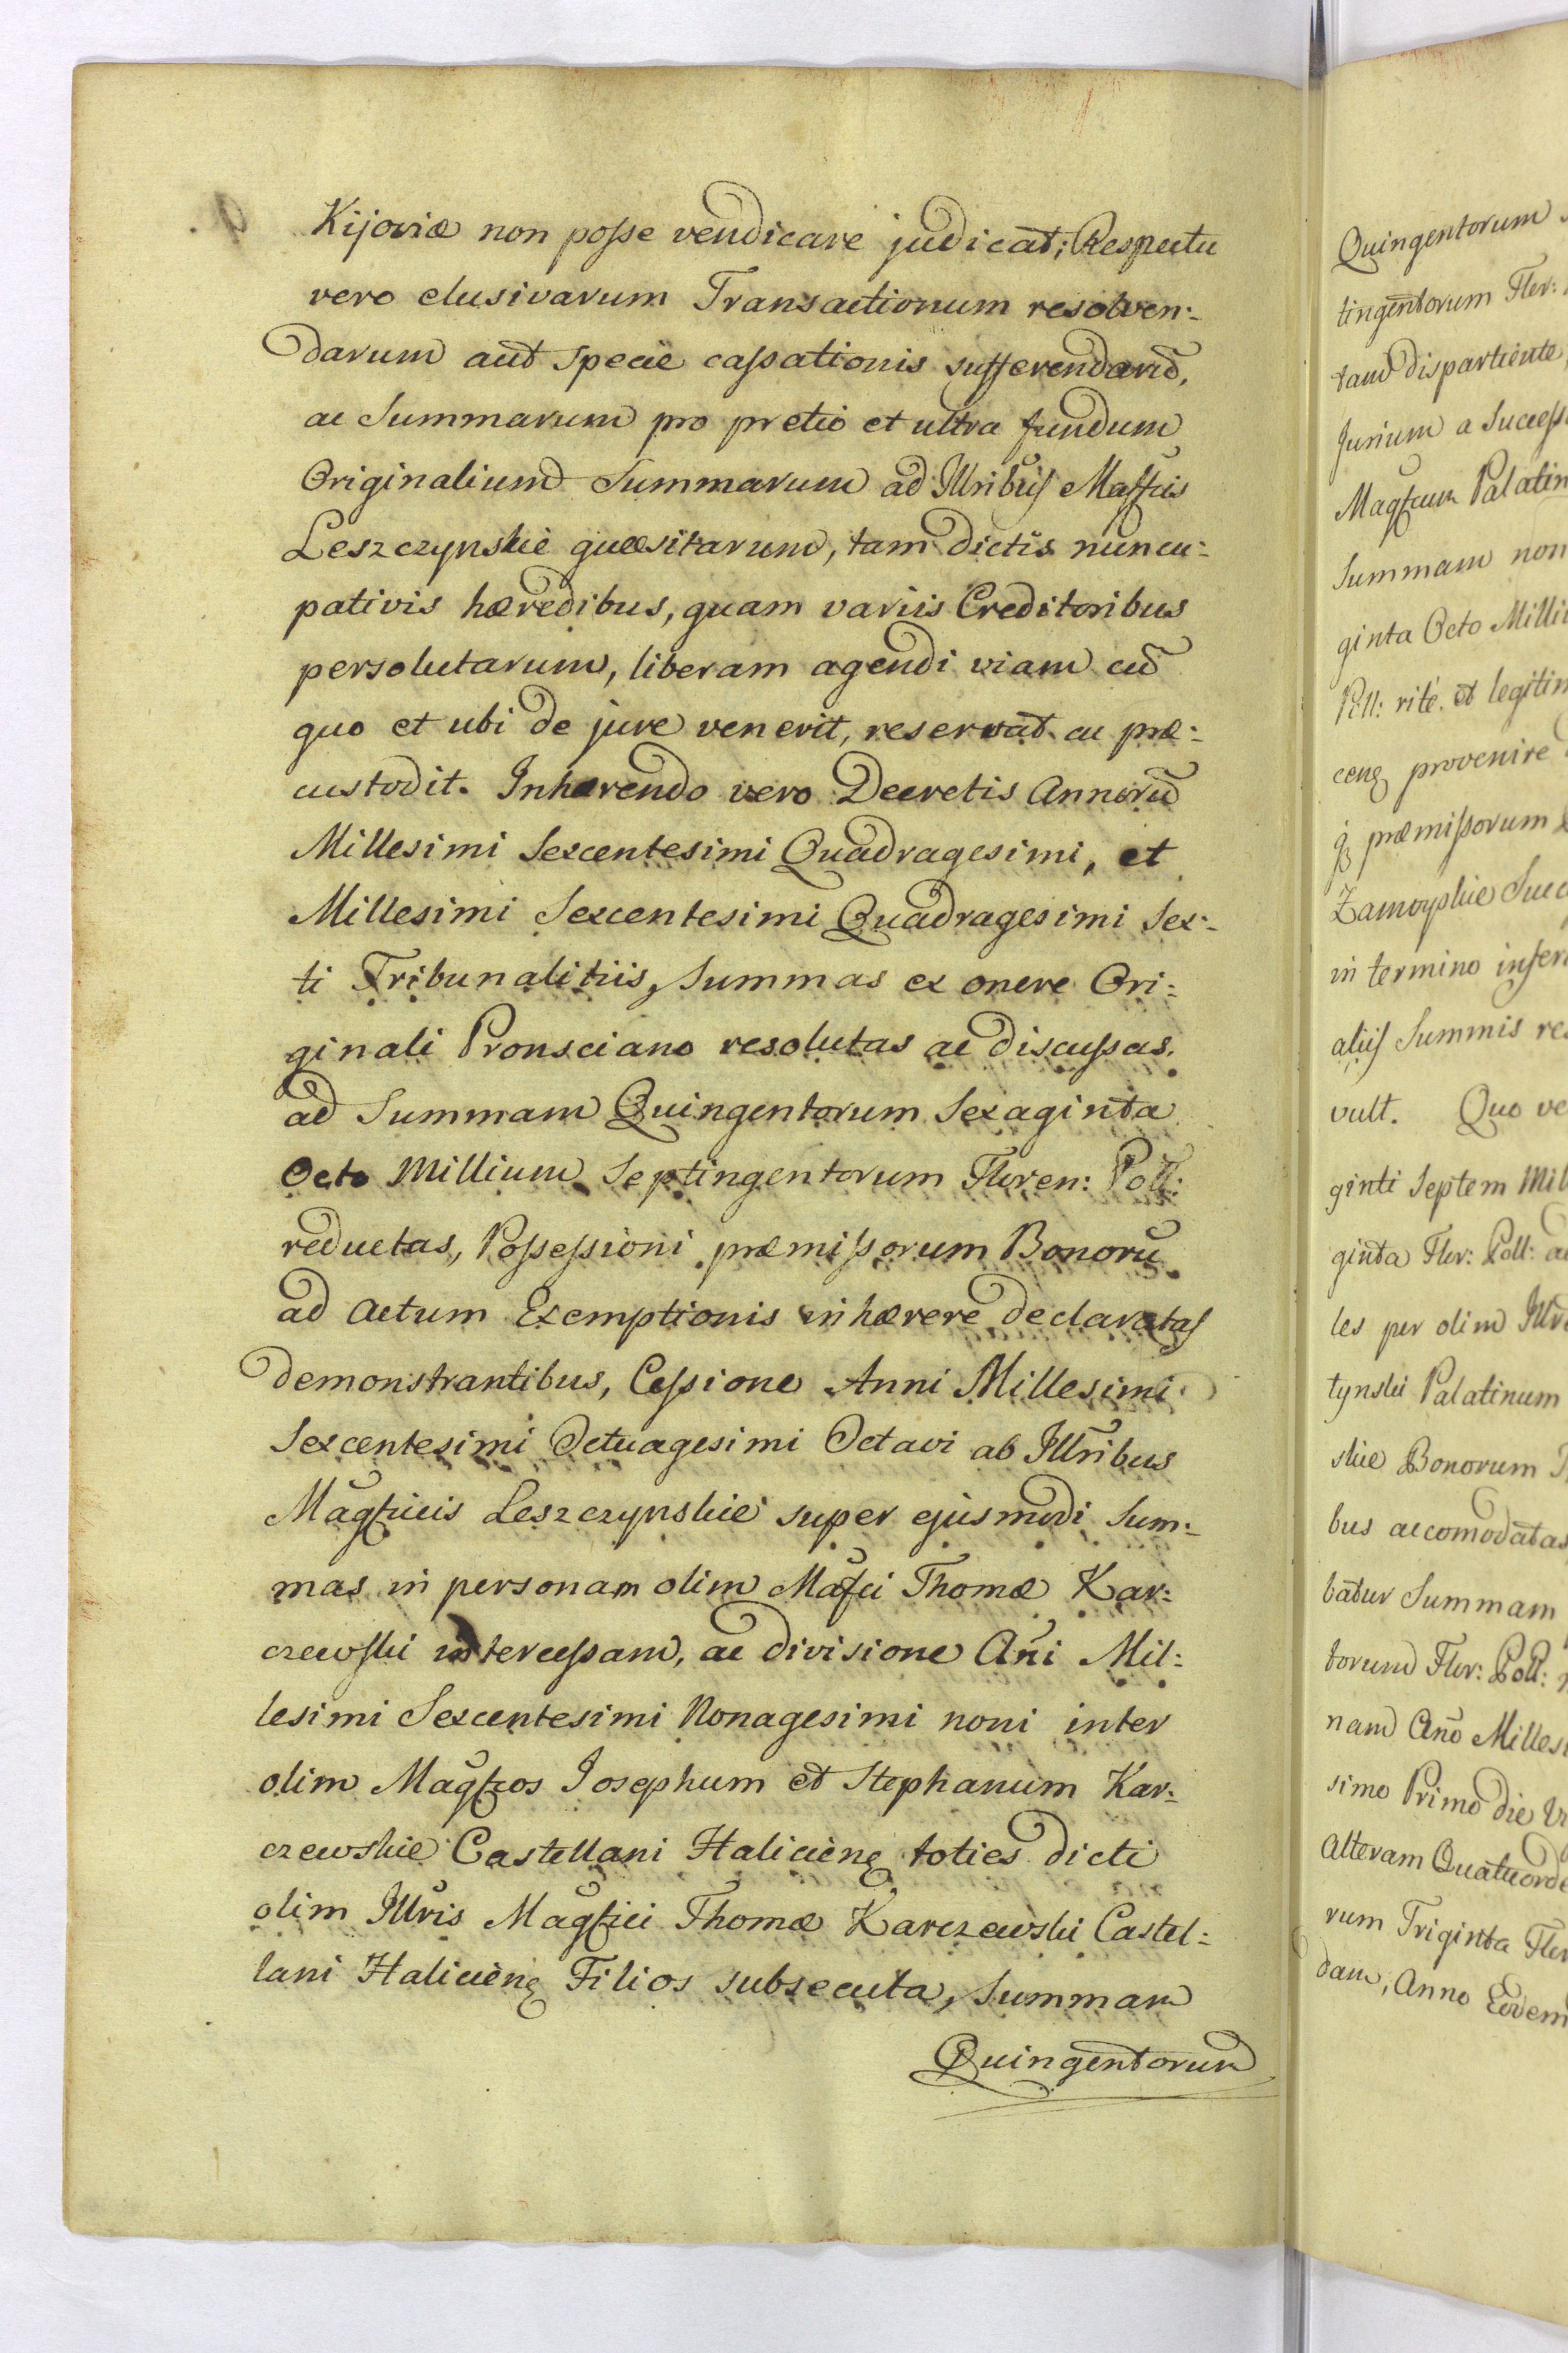 Kijoviæ non posse vendicare judicat; Respectu
vero elusivarum Transactionum resolven:
darum aut specie cassationis sufferendarū,
ac Summarum pro pretio et ultra fundum
Originalium Summarum ad Illribus Maffcis
Leszczynskie quæsitarum, tam dictis nuncu:
pativis hæredibus, quam variis Creditoribus
persolutarum, liberam agendi viam cū
quo et ubi de jure venerit, reservat ac præ:
custodit. Inhærendo vero Decretis Annorū
Millesimi Sexcentesimi Quadragesimi, et
Millesimi Sexcentesimi Quadragesimi Sex:
ti Tribunalitiis, Summas ex onere Ori:
ginali Pronsciano resolutas ac discussas.
ad Summam Quingentorum Sexaginta
Octo Millium Septingentorum Floren: Poll:
reductas, Possessioni præmissorum Bonorū
ad Actum Exemptionis inhærere declaratas
demonstrantibus, Cessione Anni Millesimi
Sexcentesimi Octuagesimi Octavi ab Illribus
Magfficis Leszczynskie super ejusmodi Sum:
mas in personam olim Maffci Thomæ Kar:
czewski intercessam, ac divisione Añi Mil:
lesimi Sexcentesimi Nonagesimi noni inter
olim Magffcos Josephum et Stephanum Kar:
czewskie Castellani Halicieñ toties dicti
olim Illris Magffici Thomæ Karczewski Castel:
lani Halicieñ Filios subsecuta, Summam
Quingentorum
Quingentorum
tingentorum Flor:
tam dispartiente
Jurium a Success
Magffcum Palatin
Summam non
ginta Octo Milli
Poll: rité et legitim
provenire
præmissorum
Zamoyskie Succ
in termino infer
aliis Summis res
vult. Quo ve
ginti Septem Mil
ginta Flor: Poll: ac
les per olim Illr
tynski Palatinum
skie Bonorum
bus accomodatas
batur Summam
torum Flor: Poll:
nam Año Milles
simo Primo die Vi
Alteram Quatuorde
rum Triginta Flor
dam, Anno Eodem